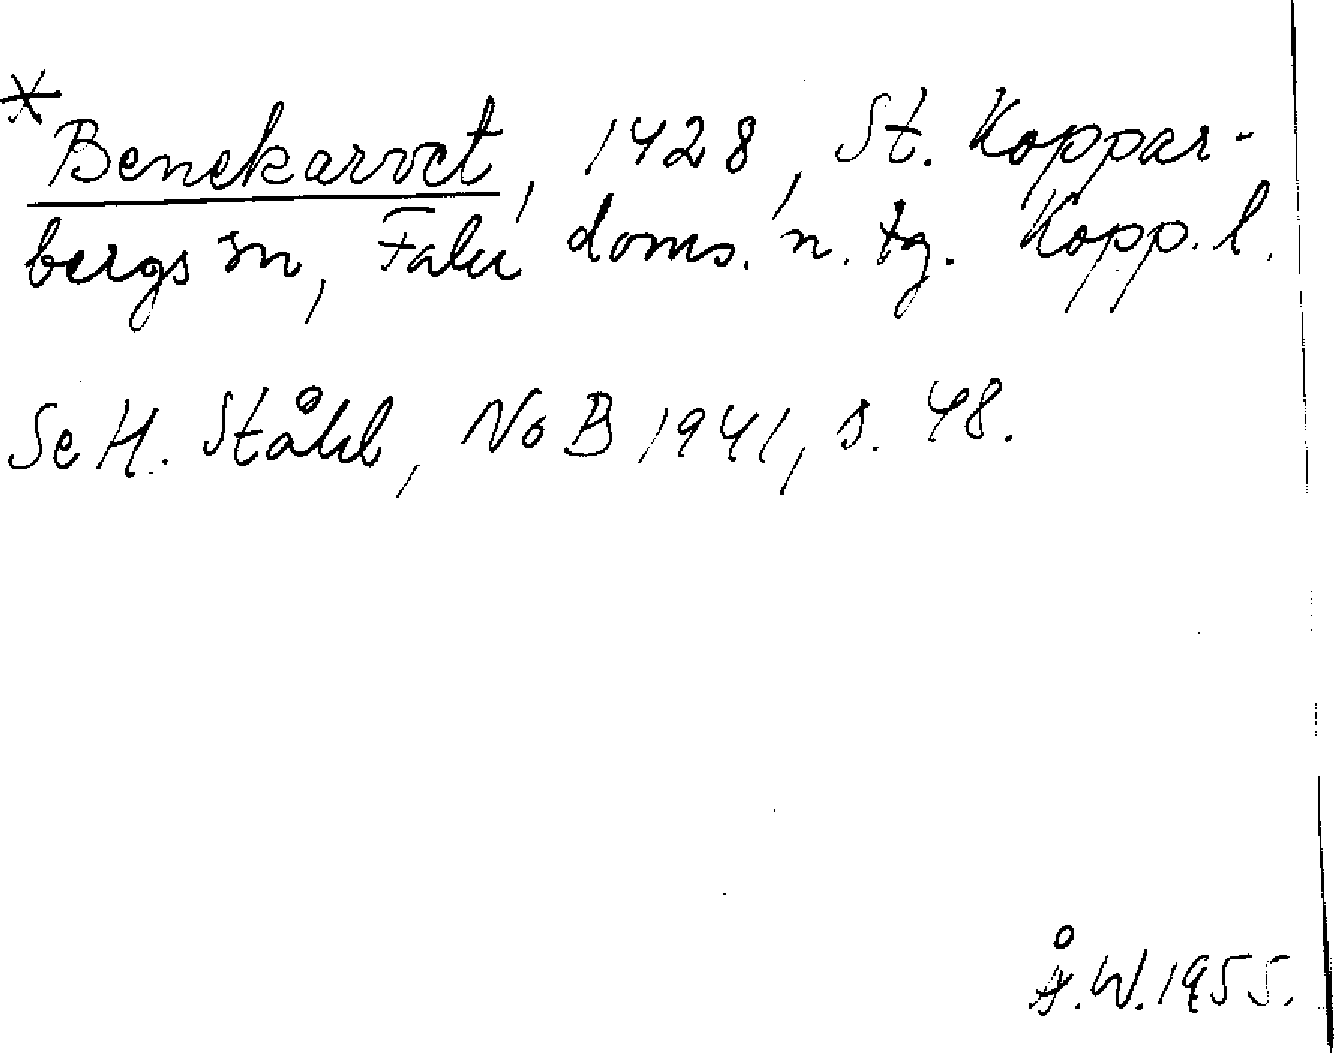 *Benekarvet, 1428, St. Koppar-
bergs sn, Falu doms. n. tg. Kopp. l.
Se H. Ståhl, NoB 1941, s. 48.
Å.W. 1955.